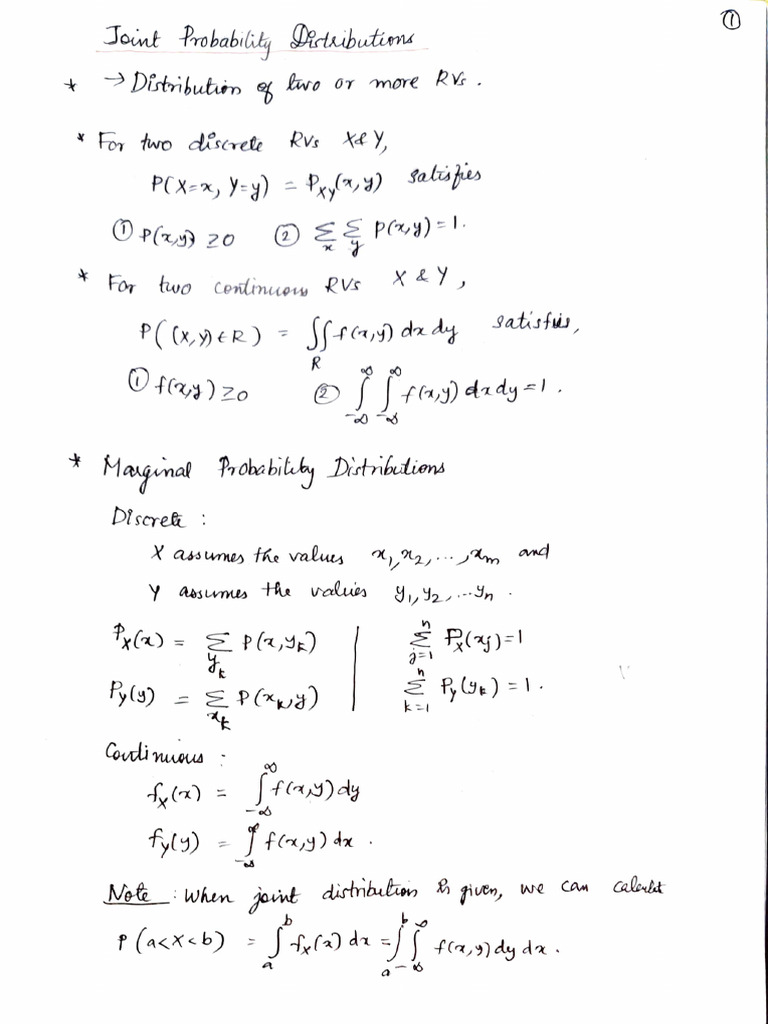 ①
Joint Probability Distributions
* → Distribution of two or more RVs.
* For two discrete RVs X & Y,
P(X=x, Y=y) = P_XY(x,y) satisfies
① P(x,y) ≥ 0 ② Σ_x Σ_y P(x,y) = 1.
* For two continuous RVs X & Y,
P((X,Y) ∈ R) = ∬_R f(x,y) dx dy satisfies,
① f(x,y) ≥ 0 ② ∫_{-∞}^{∞} ∫_{-∞}^{∞} f(x,y) dx dy = 1.
* Marginal Probability Distributions
Discrete :
X assumes the values x₁, x₂, ..., x_m and
Y assumes the values y₁, y₂, ... y_n.
P_X(x) = Σ_{y_k} P(x,y_k) | Σ_{j=1}^{n} P_X(x_j) = 1
P_Y(y) = Σ_{x_k} P(x_k,y) | Σ_{k=1}^{n} P_Y(y_k) = 1.
Continuous :
f_X(x) = ∫_{-∞}^{∞} f(x,y) dy
f_Y(y) = ∫_{-∞}^{∞} f(x,y) dx.
Note : When joint distribution is given, we can calculat
P(a<X<b) = ∫_a^b f_X(x) dx = ∫_a^b ∫_{-∞}^{∞} f(x,y) dy dx.